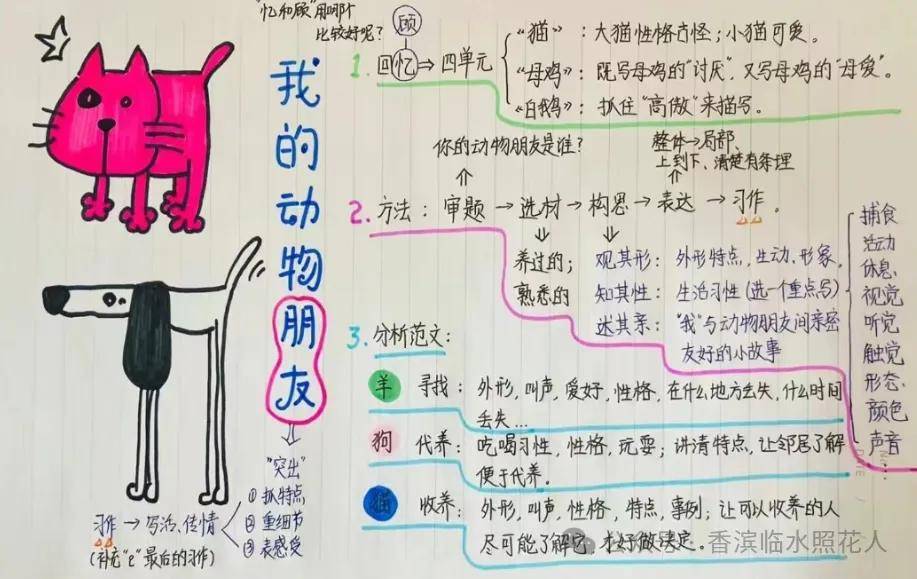 "忆和顾"用哪个
比较好呢?
顾
1. 回忆⇒四单元
"猫":大猫性格古怪;小猫可爱。
"母鸡":既写母鸡的"讨厌",又写母鸡的"母爱"。
"白鹅":抓住"高傲"来描写。
我的动物朋友
你的动物朋友是谁?
整体→局部、
上到下、清楚有条理
2. 方法:审题→选材→构思→表达→习作。
养过的;
熟悉的
观其形:外形特点,生动、形象,
知其性:生活习性(选一个重点写)
述其亲:"我"与动物朋友间亲密
友好的小故事
捕食
活动
休息、
视觉
听觉
触觉
形态、
颜色
声音
3. 分析范文:
羊 寻找:外形,叫声,爱好,性格,在什么地方丢失,什么时间
丢失...
狗 代养:吃喝习性,性格,玩耍;讲清特点,让邻居了解
便于代养。
猫 收养:外形,叫声,性格,特点,事例;让可以收养的人
尽可能了解它,才好做决定。
"突出"
①抓特点
②重细节
③表感受
习作→写活、传情
(补充"2"最后的习作)
香滨临水照花人